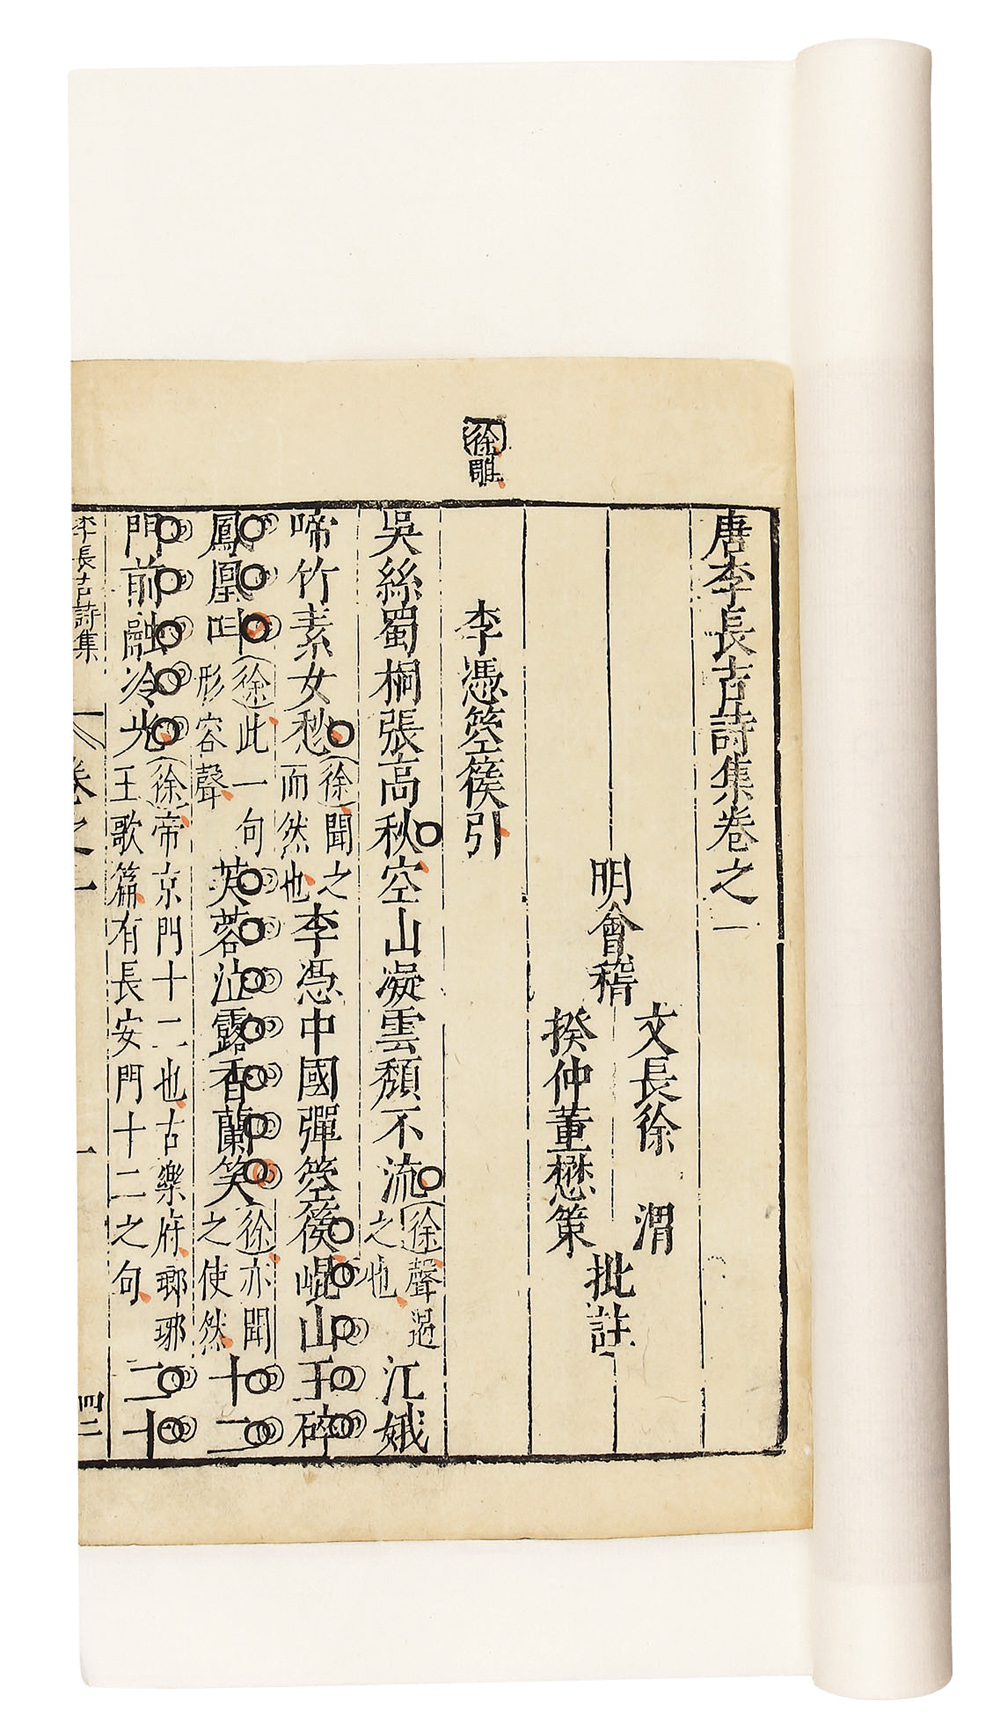 徐
雕
唐李長吉詩集卷之一
明會稽
文長徐　渭
揆仲董懋策
批註
李憑箜篌引
吳絲蜀桐張高秋空山凝雲頹不流
徐聲遏
之也
江娥
啼竹素女愁
徐聞之
而然也
李憑中國彈箜篌崐山玉碎
鳳凰叫
徐此一句
形容聲
芙蓉泣露香蘭笑
徐亦聞
之使然
十二
門前融冷光
徐帝京門十二也古樂府瑯琊
王歌篇有長安門十二之句
二十
李長吉詩集
卷之一
一